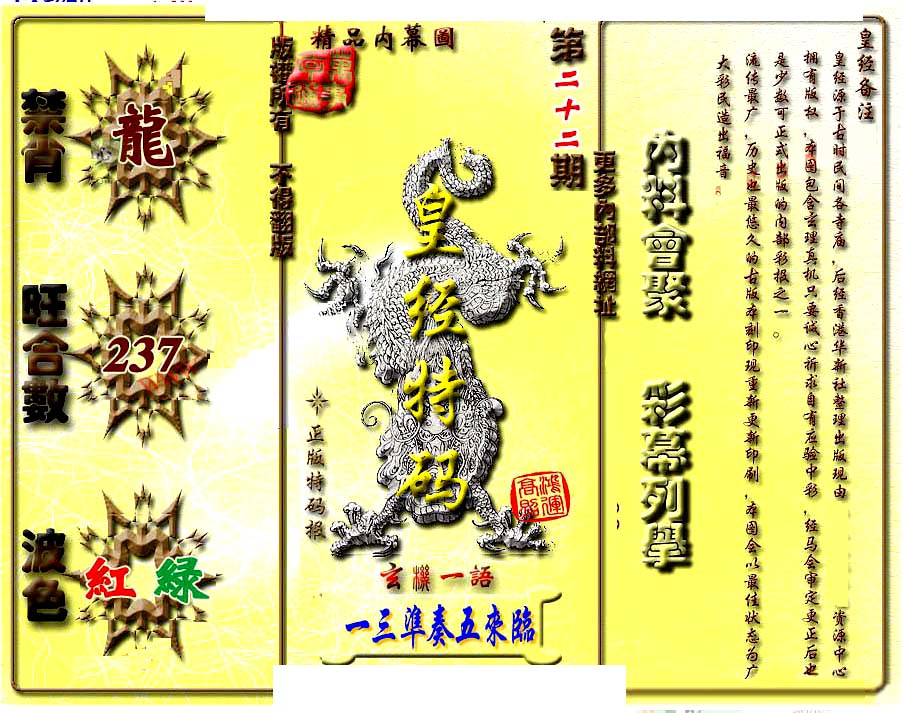 精品内幕圖
第二十二期
版權所有 不得翻版
更多內部料網址
禁肖
龍
旺合數
237
波色
紅 綠
皇经特码
正版特码报
鴻運高照
玄機一語
一三準奏五來臨
內料會聚
彩幕列舉
皇经备注
皇经源于古时民间各寺庙，后经香港华新社整理出版现由 资源中心
拥有版权，本图包含玄理真机只要诚心祈求自有应验中彩，经马会审定更正后也
是少数可正式出版的内部彩报之一。
流传最广，历史也最悠久的古版本刻印现重新更新印刷，本图会以最佳状态为广
大彩民造出福音